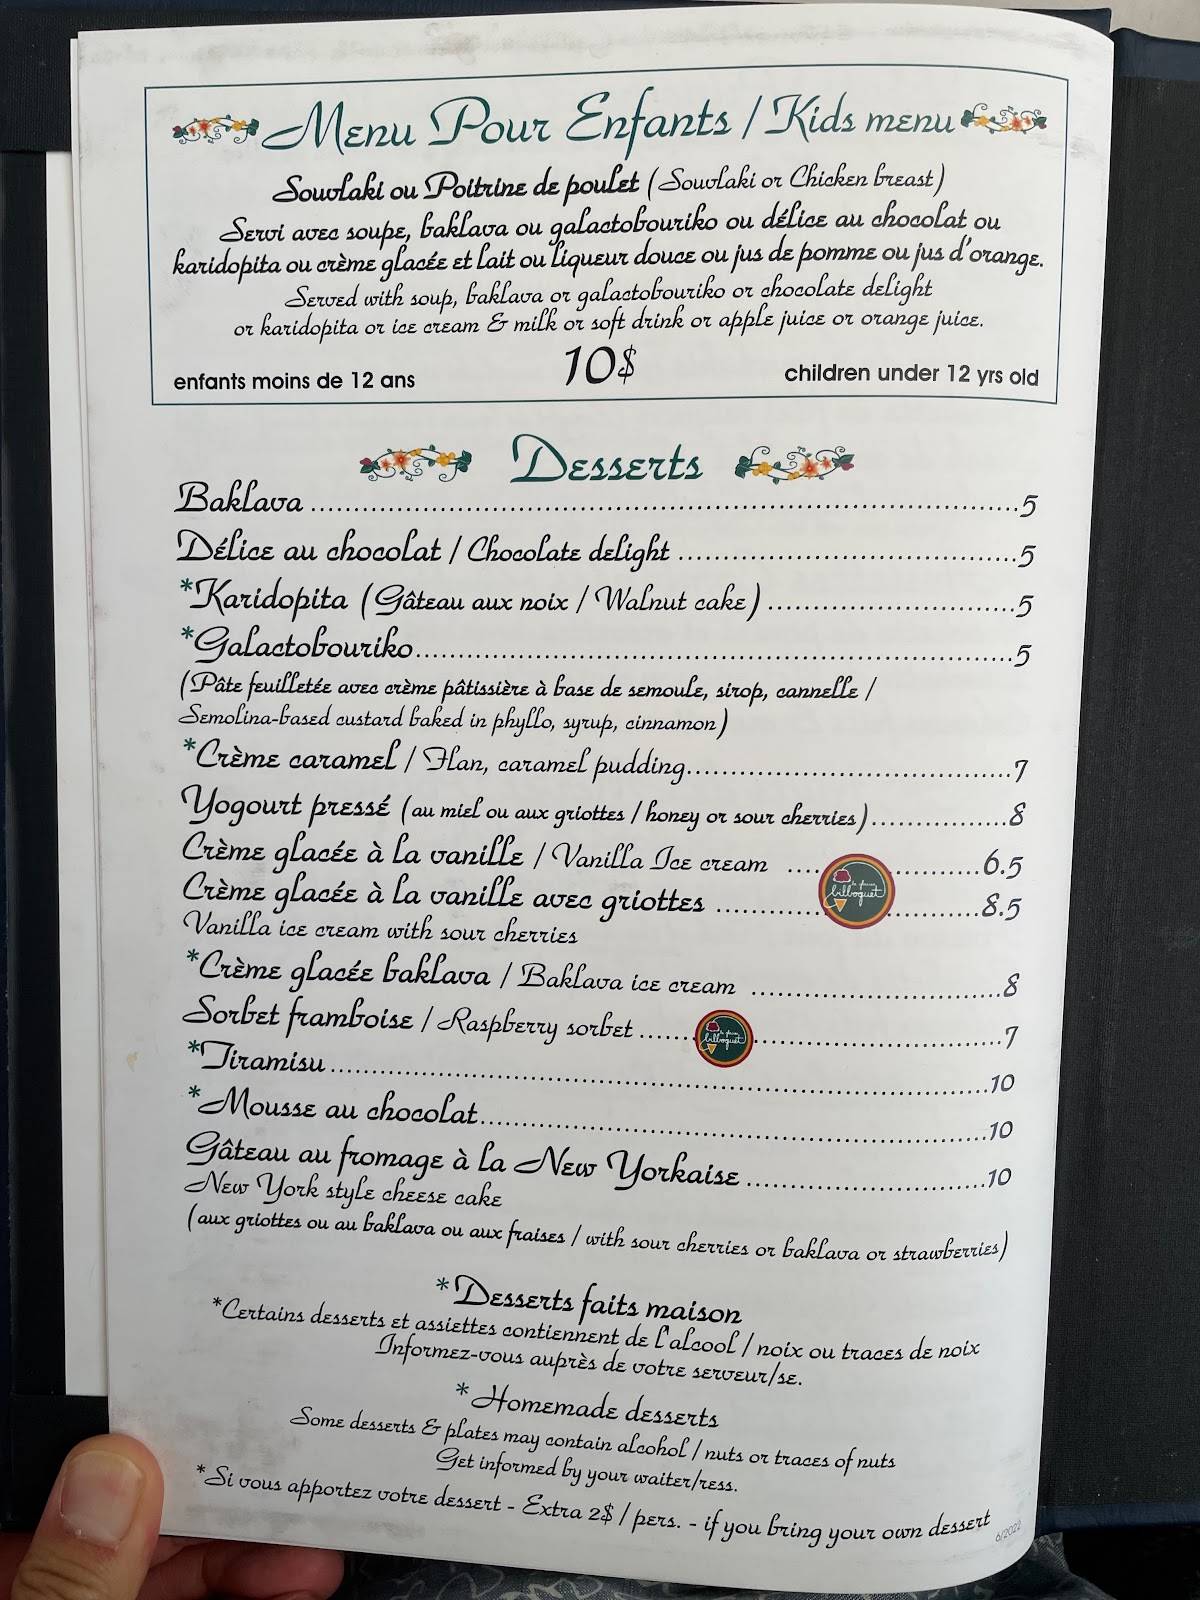 Menu Pour Enfants / Kids menu
Souvlaki ou Poitrine de poulet (Souvlaki or Chicken breast)
Servi avec soupe, baklava ou galactobouriko ou délice au chocolat ou
karidopita ou crème glacée et lait ou liqueur douce ou jus de pomme ou jus d'orange.
Served with soup, baklava or galactobouriko or chocolate delight
or karidopita or ice cream & milk or soft drink or apple juice or orange juice.
enfants moins de 12 ans 10$ children under 12 yrs old
Desserts
Baklava ........ 5
Délice au chocolat / Chocolate delight ........ 5
*Karidopita (Gâteau aux noix / Walnut cake) ........ 5
*Galactobouriko ........ 5
(Pâte feuilletée avec crème pâtissière à base de semoule, sirop, cannelle /
Semolina-based custard baked in phyllo, syrup, cinnamon)
*Crème caramel / Flan, caramel pudding ........ 7
Yogourt pressé (au miel ou aux griottes / honey or sour cherries) ........ 8
Crème glacée à la vanille / Vanilla Ice cream ........ 6.5
bilboquet
Crème glacée à la vanille avec griottes ........ 8.5
Vanilla ice cream with sour cherries
*Crème glacée baklava / Baklava ice cream ........ 8
Sorbet framboise / Raspberry sorbet ........ 7
bilboquet
*Tiramisu ........ 10
*Mousse au chocolat ........ 10
Gâteau au fromage à la New Yorkaise ........ 10
New York style cheese cake
(aux griottes ou au baklava ou aux fraises / with sour cherries or baklava or strawberries)
*Desserts faits maison
*Certains desserts et assiettes contiennent de l'alcool / noix ou traces de noix
Informez-vous auprès de votre serveur/se.
*Homemade desserts
Some desserts & plates may contain alcohol / nuts or traces of nuts
Get informed by your waiter/ress.
*Si vous apportez votre dessert - Extra 2$ / pers. - if you bring your own dessert
6/2022